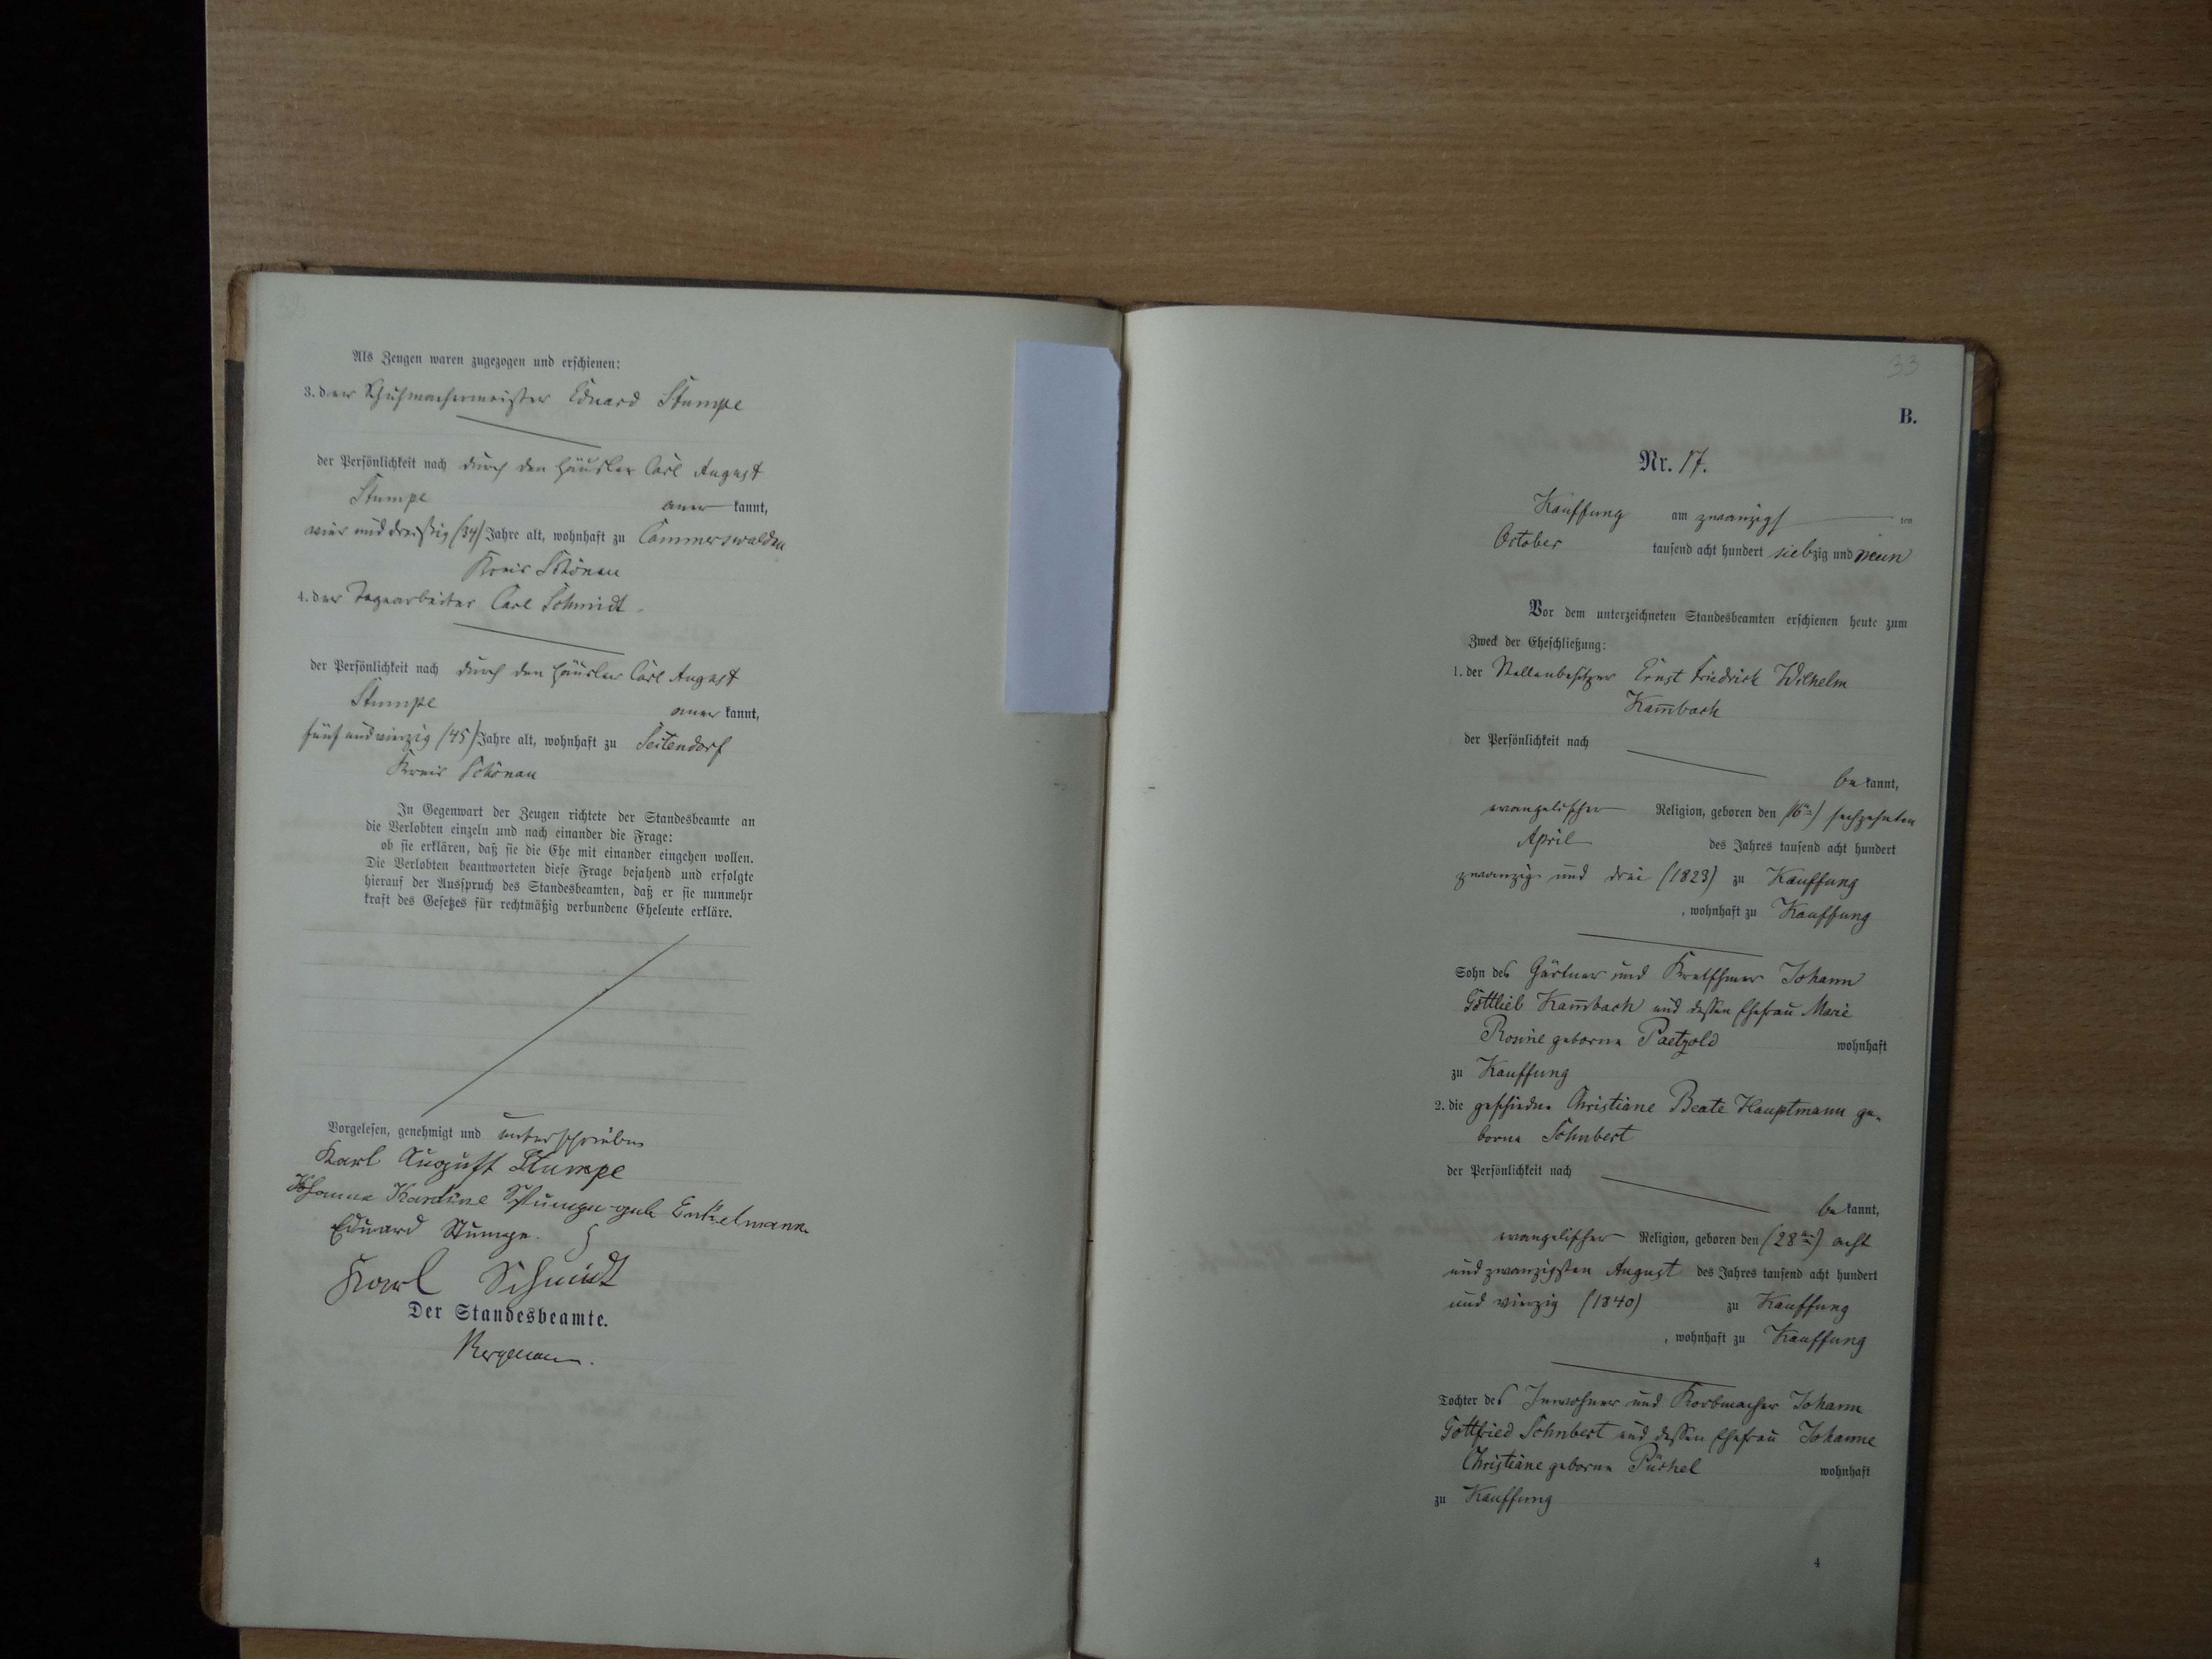 32
Als Zeugen waren zugezogen und erschienen:
3. der Schuhmachermeister Eduard Stumpe
der Persönlichkeit nach durch den Häusler Carl August
Stumpe anerkannt,
vier und dreißig (34) Jahre alt, wohnhaft zu Cammerswaldau
Kreis Schönau
4. der Tagearbeiter Carl Schmidt.
der Persönlichkeit nach durch den Häusler Carl August
Stumpe anerkannt,
fünf und vierzig (45) Jahre alt, wohnhaft zu Seitendorf
Kreis Schönau
In Gegenwart der Zeugen richtete der Standesbeamte an
die Verlobten einzeln und nach einander die Frage:
ob sie erklären, daß sie die Ehe mit einander eingehen wollen.
Die Verlobten beantworteten diese Frage bejahend und erfolgte
hierauf der Ausspruch des Standesbeamten, daß er sie nunmehr
kraft des Gesetzes für rechtmäßig verbundene Eheleute erkläre.
Vorgelesen, genehmigt und unterschrieben
Karl August Stumpe
Johanna Karoline Stumpe geb Enkelmann
Eduard Stumpe.
Karl Schmidt
Der Standesbeamte.
33
B.
Nr. 17.
Kauffung am zwanzigsten
October tausend acht hundert siebzig und neun
Vor dem unterzeichneten Standesbeamten erschienen heute zum
Zweck der Eheschließung:
1. der Stellenbesitzer Ernst Friedrich Wilhelm
Kam̄bach
der Persönlichkeit nach
bekannt,
evangelischer Religion, geboren den (16ten) sechzehnten
April des Jahres tausend acht hundert
zwanzig und drei (1823) zu Kauffung
, wohnhaft zu Kauffung
Sohn des Gärtner und Kretschmer Johann
Gottlieb Kam̄bach und dessen Ehefrau Marie
Rosine geborne Paetzold wohnhaft
zu Kauffung
2. die geschiedne Christiane Beate Hauptmann ge-
borne Schubert
der Persönlichkeit nach
bekannt,
evangelischer Religion, geboren den (28ten) acht
und zwanzigsten August des Jahres tausend acht hundert
und vierzig (1840) zu Kauffung
, wohnhaft zu Kauffung
Tochter des Inwohner und Korbmacher Johann
Gottfried Schubert und dessen Ehefrau Johanne
Christiane geborne Püschel wohnhaft
zu Kauffung
4